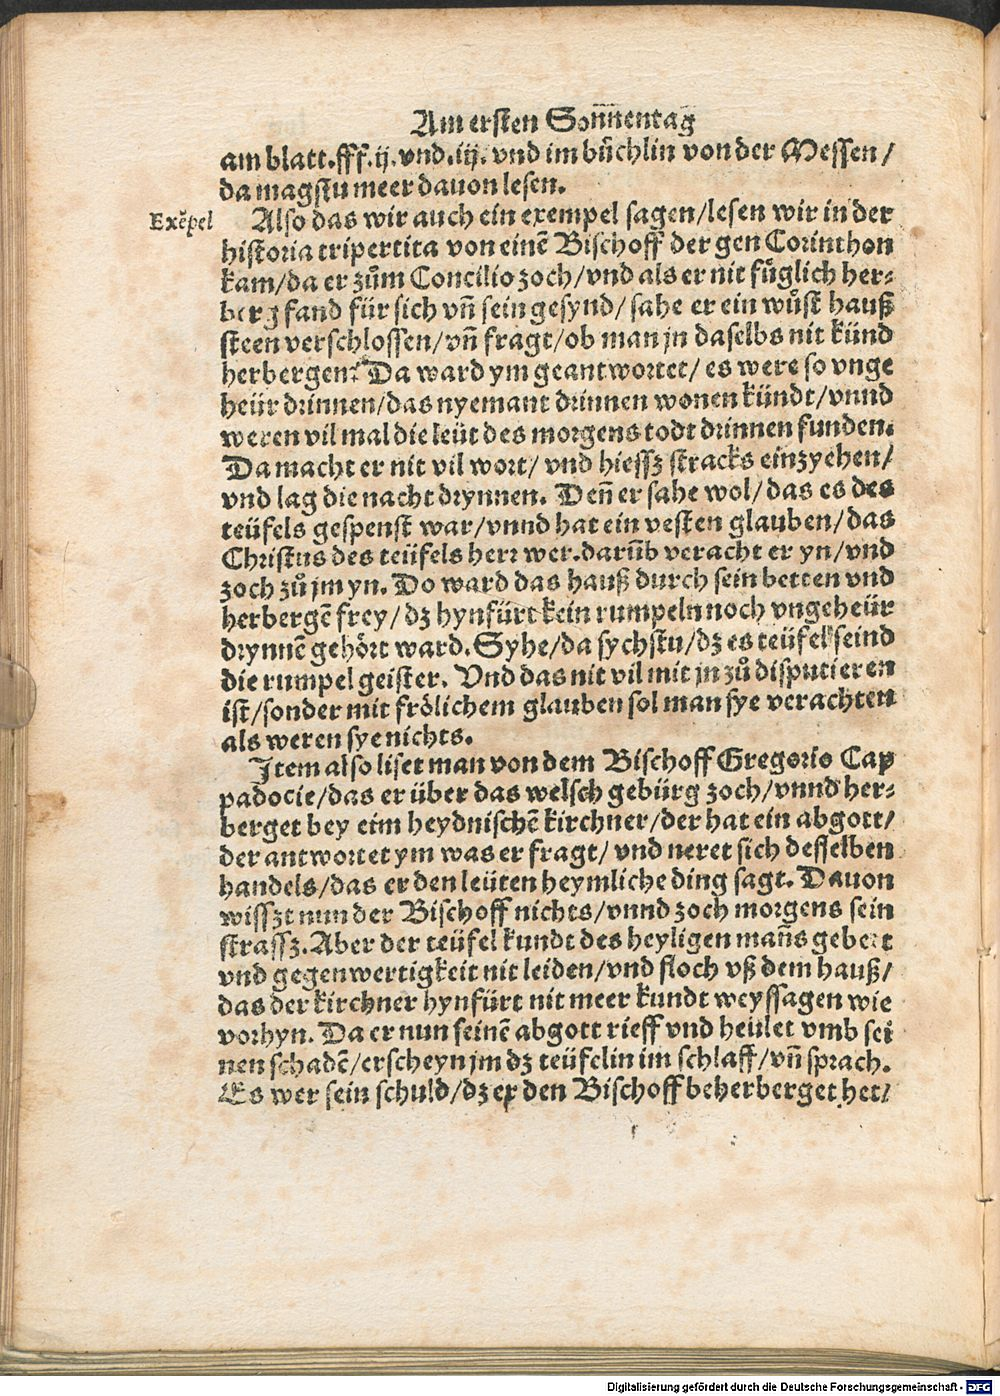 Am ersten Sonnentag
am blatt.fff.ij.vnd.iij.vnd im buͤchlin von der Messen/
da magstu meer dauon lesen.
Exẽpel
Also das wir auch ein exempel sagen/lesen wir in der
historia tripertita von einẽ Bischoff der gen Corinthon
kam/da er zům Concilio zoch/vnd als er nit fuͤglich her⸗
berg fand für sich vñ sein gesynd/ sahe er ein wůst hauß
steen verschlossen/vñ fragt/ob man jn daselbs nit künd
herbergen? Da ward ym geantwortet/ es were so vnge
heür drinnen/das nyemant drinnen wonen kündt/vnnd
weren vil mal die leüt des morgens todt drinnen funden.
Da macht er nit vil wort/ vnd hiessz stracks einzyehen/
vnd lag die nacht drynnen. Deñ er sahe wol/das es des
teüfels gespenst war/vnnd hat ein vesten glauben/das
Christus des teüfels herr wer.darũb veracht er yn/vnd
zoch zů jm yn. Do ward das hauß durch sein betten vnd
herbergẽ frey/dz hynfürt kein rumpeln noch vngeheür
drynnẽ gehoͤrt ward. Syhe/da sychstu/dz es teüfel seind
die rumpel geister. Vnd das nit vil mit jn zů disputieren
ist/sonder mit froͤlichem glauben sol man sye verachten
als weren sye nichts.
Item also liset man von dem Bischoff Gregorio Cap
padocie/das er über das welsch gebürg zoch/vnnd her⸗
berget bey eim heydnischẽ kirchner/der hat ein abgott/
der antwortet ym was er fragt/ vnd neret sich desselben
handels/das er den leüten heymliche ding sagt. Dauon
wisszt nun der Bischoff nichts/vnnd zoch morgens sein
strassz. Aber der teüfel kundt des heyligen mañs gebett
vnd gegenwertigkeit nit leiden/vnd floch vß dem hauß/
das der kirchner hynfürt nit meer kundt weyssagen wie
vorhyn. Da er nun seinẽ abgott rieff vnd heület vmb sei
nen schadẽ/erscheyn jm dz teüfelin im schlaff/vñ sprach.
Es wer sein schuld/dz er den Bischoff beherberget het/
Digitalisierung gefördert durch die Deutsche Forschungsgemeinschaft - DFG